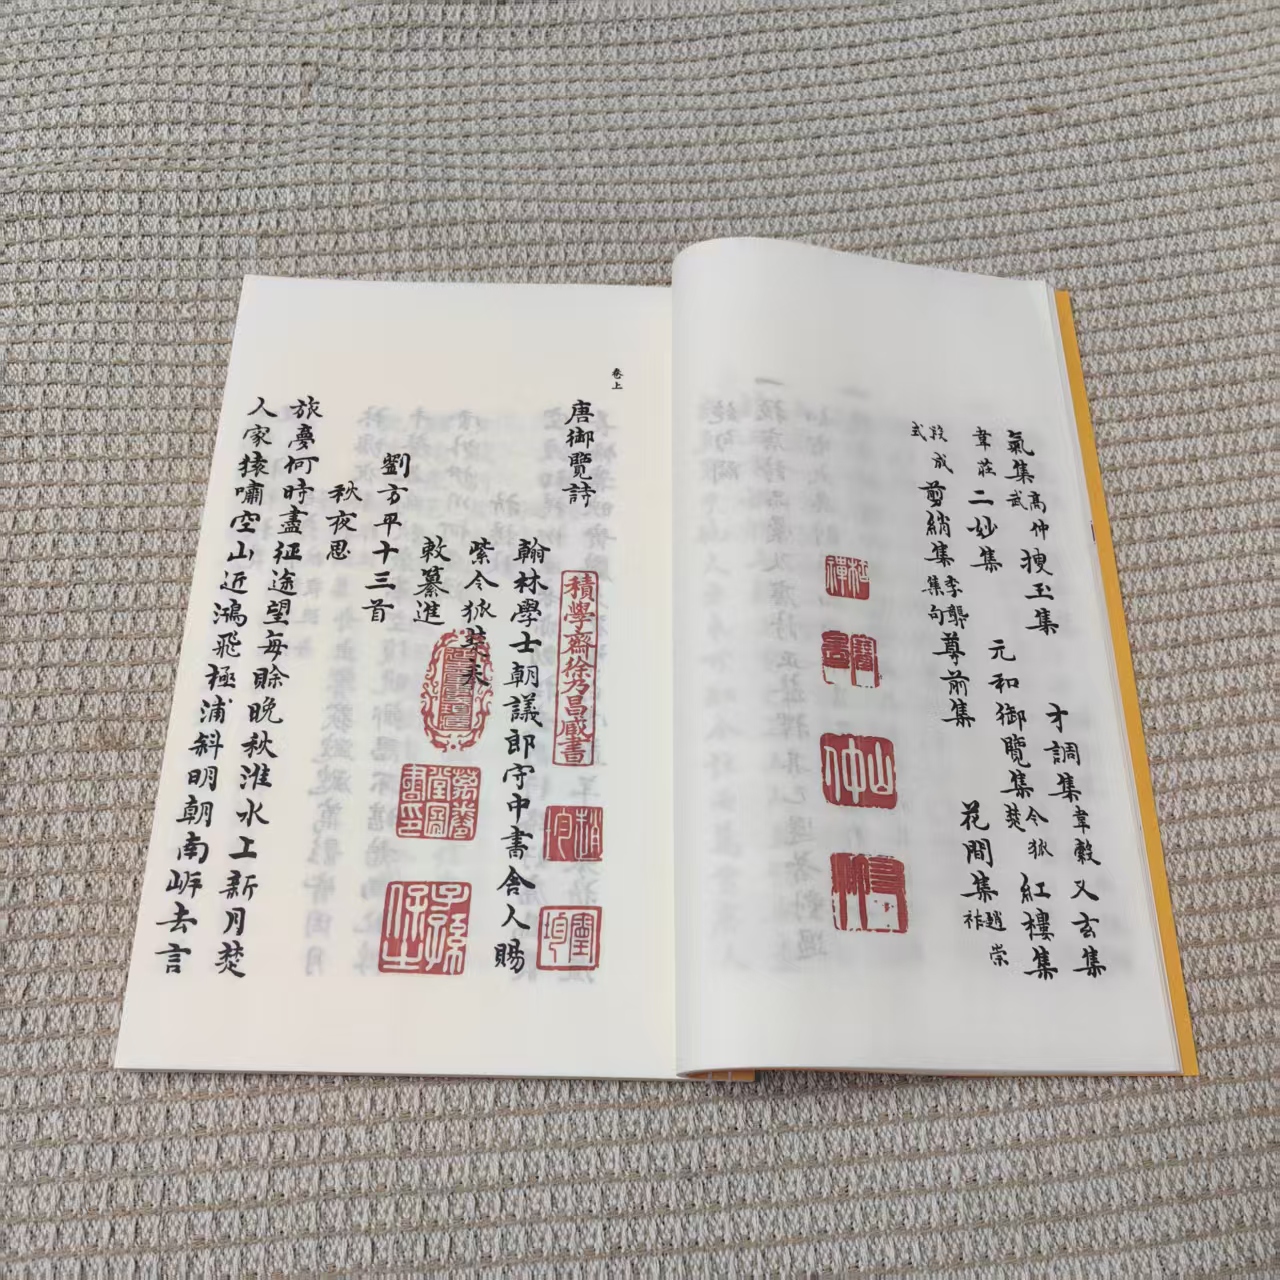 氣集高仲武搜玉集 才調集韋縠又玄集
韋莊二妙集 元和御覽集令狐楚紅樓集
段成式翦綃集李龏集句尊前集 花間集趙崇祚
仲山
卷上
唐御覽詩
積學齋徐乃昌藏書
翰林學士朝議郎守中書舍人賜
紫令狐楚奉
敕纂進
劉方平十三首
秋夜思
旅夢何時盡征途望每賖晚秋淮水上新月楚
人家猿嘯空山近鴻飛極浦斜明朝南岸去言